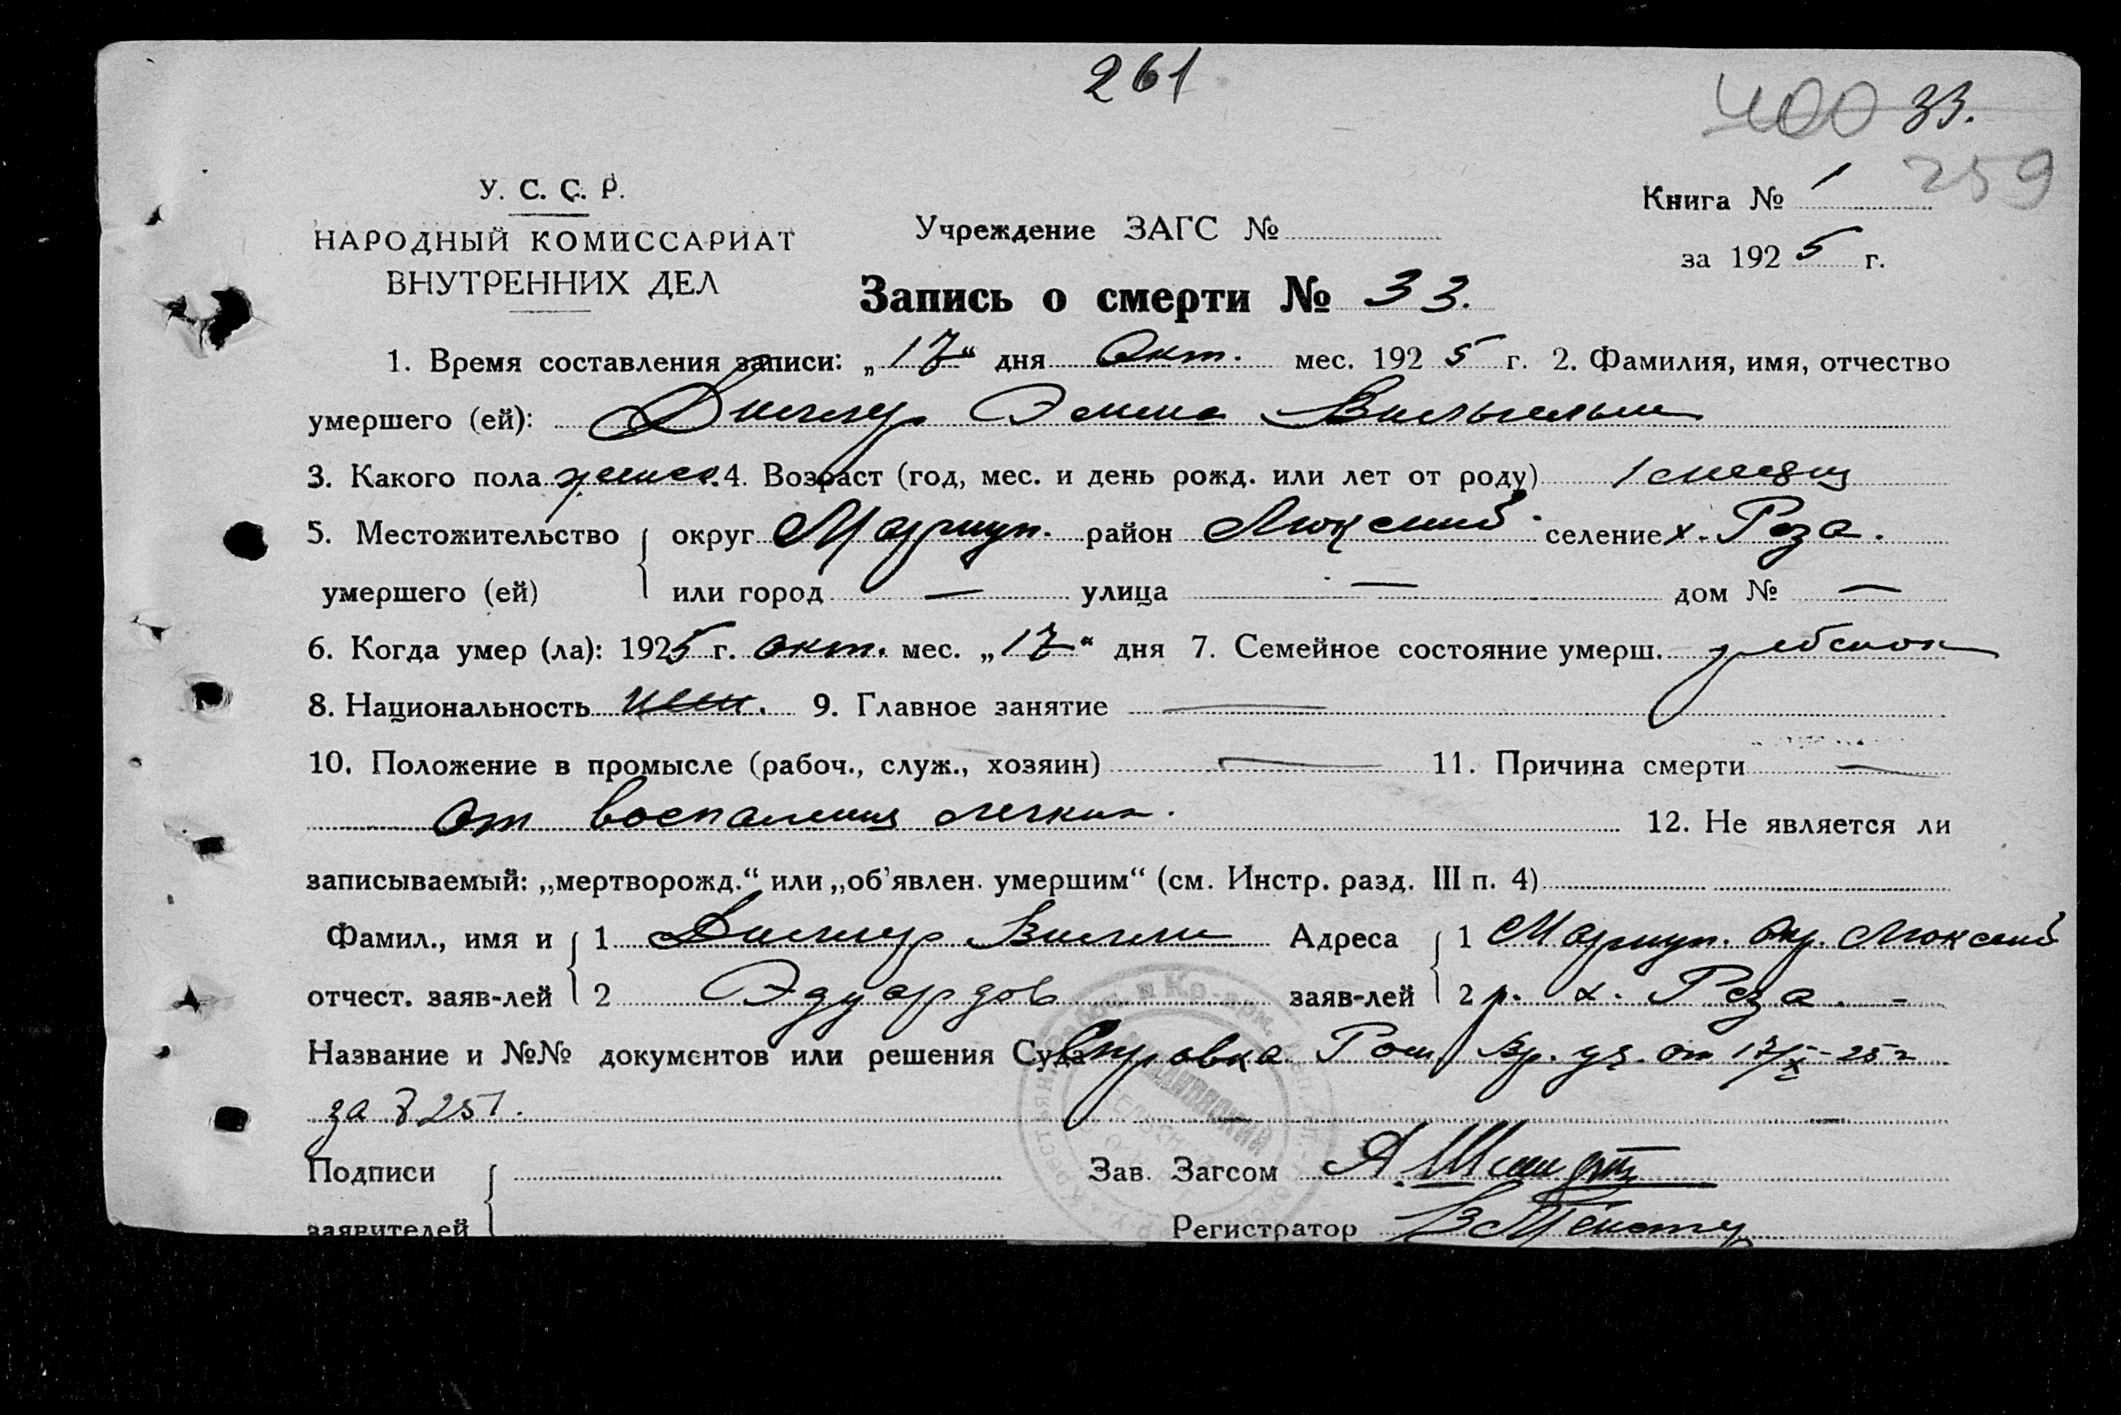 261
400 33.
259
У. С. С. Р.
НАРОДНЫЙ КОМИССАРИАТ
ВНУТРЕННИХ ДЕЛ
Учреждение ЗАГС №
Книга № 1
за 1925 г.
Запись о смерти № 33.
1. Время составления записи: „17“ дня Окт. мес. 1925 г. 2. Фамилия, имя, отчество
умершего (ей): Эмма Вильгельм
3. Какого пола женск. 4. Возраст (год, мес. и день рожд. или лет от роду) 1 месяц
5. Местожительство округ Мариуп. район Люксемб. селение х. Роза.
умершего (ей) или город — улица — дом № —
6. Когда умер (ла): 1925 г. окт. мес. „17“ дня 7. Семейное состояние умерш. ребенок
8. Национальность нем. 9. Главное занятие —
10. Положение в промысле (рабоч., служ., хозяин) — 11. Причина смерти —
от воспаления легких. 12. Не является ли
записываемый: „мертворожд.“ или „об'явлен. умершим“ (см. Инстр. разд. III п. 4)
Фамил., имя и 1 Адреса 1 Мариуп. окр. Люксемб
отчест. заяв-лей 2 Эдуардов заяв-лей 2 р. х. Роза. -
Название и №№ документов или решения Суда Справка Вр. уч. от 17/X-25 г
за № 251.
Подписи Зав. Загсом А. Шмидт
заявителей Регистратор